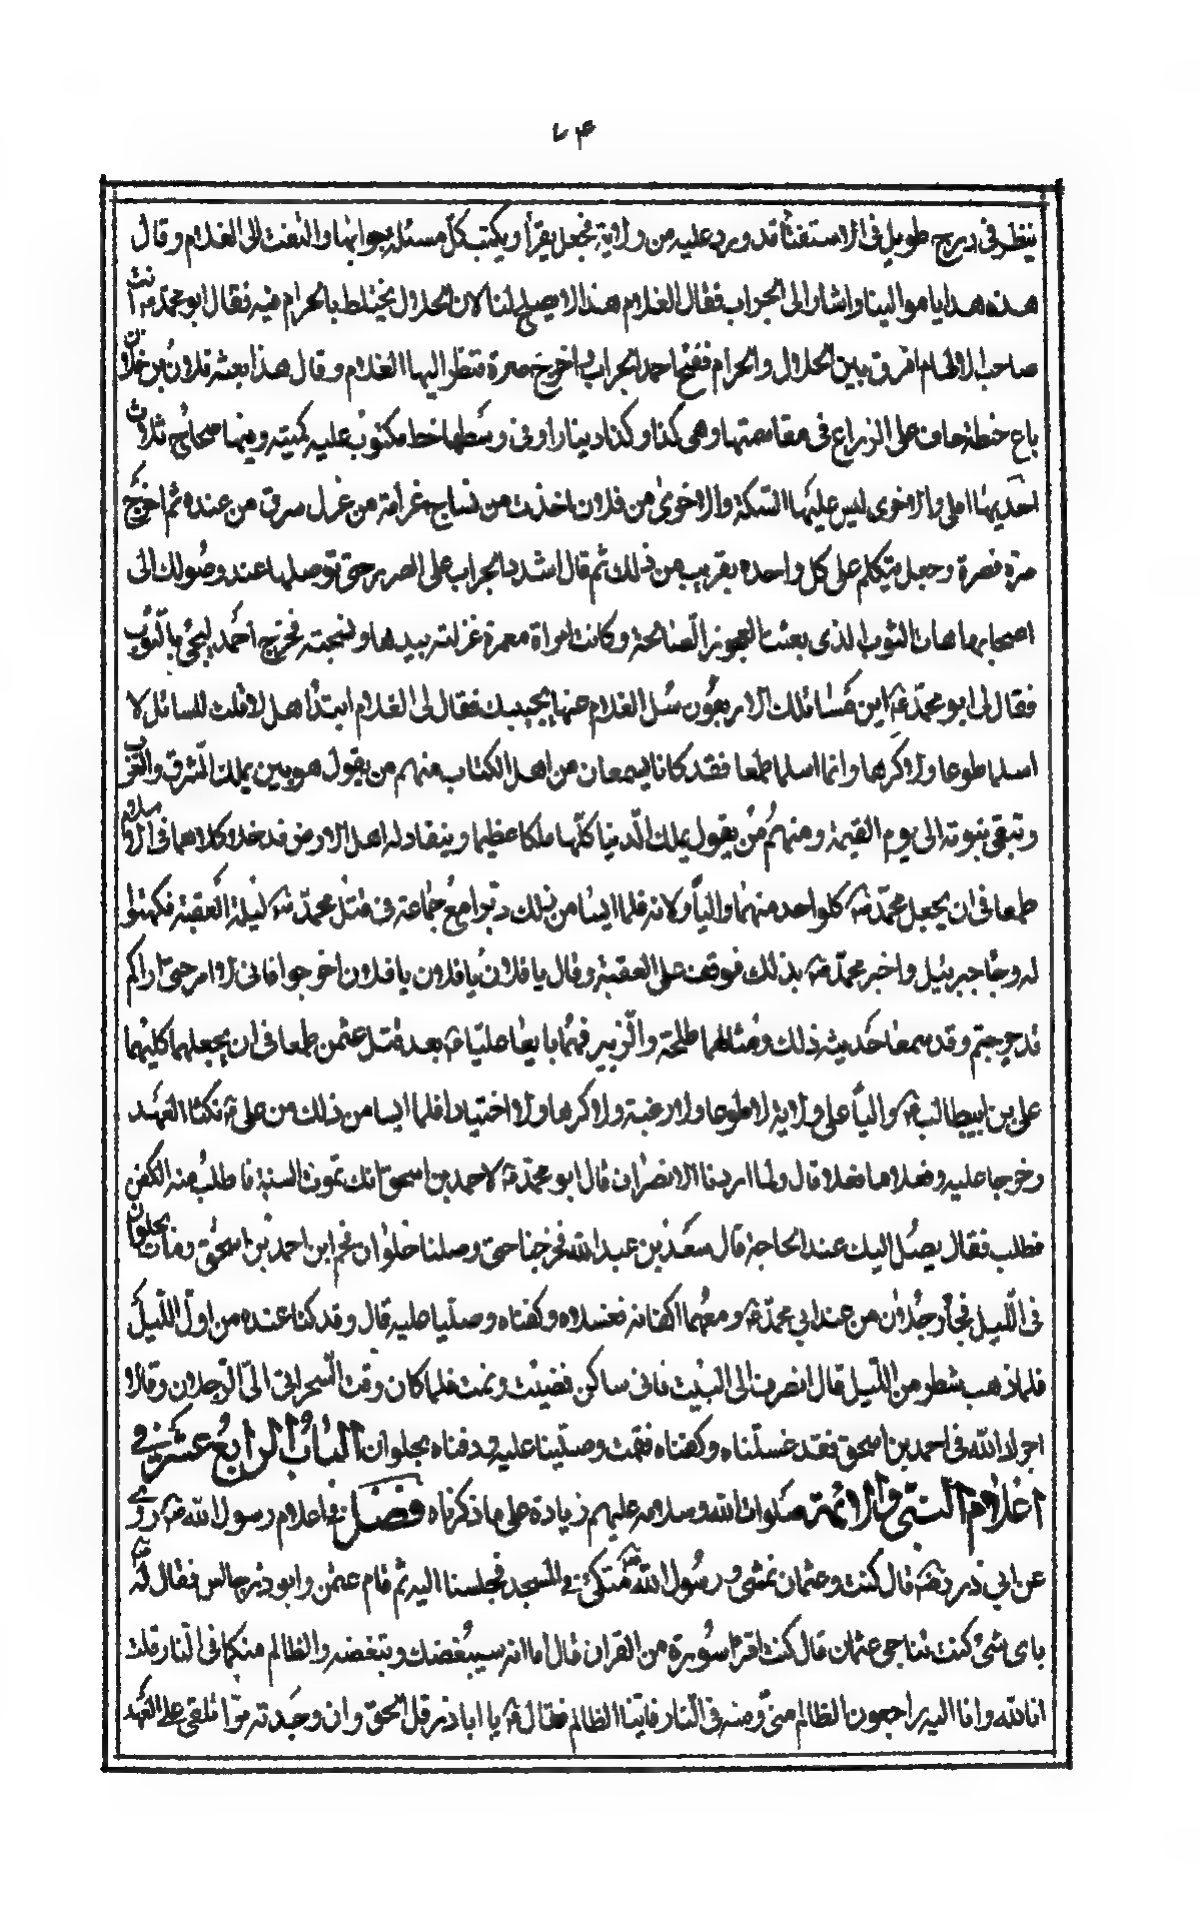 ٧٤
ينظر في درج طويل في الاستفتاء قد ورد عليه من ولاية فجعل يقرأ ويكتب كل مسئلة جوابها والتفت الى الغلام وقال
هذه هدايا موالينا واشار الى الجراب فقال الغلام هذا لا يصلح لنا لان الحلال يختلط بالحرام فيه فقال ابو محمد ع انت
صاحب الالهام افرق بين الحلال والحرام ففتح احمد الجراب واخرج صرة فنظر اليها الغلام وقال هذا بعثه فلان بن فلان
باع حنطة خاف على الزراع في مقاسمتها وهي كذا وكذا دينارا وفى وسطها خط مكتوب عليه كميته وفيها صحاح ثلاث
احديها املى والاخرى ليس عليها السكة والاخرى من فلان اخذت من نساج غرامة من غزل سرق من عنده ثم اخرج
صرة فصرة وجعل يتكلم على كل واحدة بقريب من ذلك ثم قال اشدد الجراب على الصرر حتى توصلها عند وصولك الى
اصحابها هات الثوب الذى بعثت العجوز الصالحة وكانت امراة معمرة غزلته بيدها ونسجته فخرج احمد ليجئ بالثوب
فقال لى ابو محمد ع اين مسائلك الاربعون سل الغلام عنها يجيبك فقال لى الغلام ابتداً هلا قلت للسائل لا
اسلما طوعا ولا كرها وانما اسلما طمعا فقد كانا يسمعان من اهل الكتاب منهم من يقول هو بين يملك المشرق والمغرب
وتبقى نبوته الى يوم القيمة ومنهم من يقول يملك الدنيا كلها ملكا عظيما وينقاد له اهل الارض فدخلا كلاهما فى الاسلام
طمعا فى ان يجعل محمد ص كلواحد منهما والياً ولانه فلما ايسا من ذلك دبرا مع جماعة فى قتل محمد ص ليلة العقبة فكمنوا
له وجاء جبرئيل واخبر محمد ص بذلك فوقف على العقبة وقال يا فلان يا فلان يا فلان اخرجوا فانى لا امر حتى اراكم
قد خرجتم وقد سمعا حديثه ذلك ومثلهما طلحة والزبير فهما بايعا عليا ع بعد قتل عثمن طمعا فى ان يجعلهما كليهما
على بن ابيطالب ع والياً على ولاية لا طوعا ولا رغبة ولا كرها ولا اختيارا فلما ايسا من ذلك من على ع نكثا العهد
وخرجا عليه وفعلا ما فعلا قال ولما اردنا الانصراف قال ابو محمد ع لاحمد بن اسحق انك تموت السنة فاطلب منه الكفن
فطلب فقال يصل اليك عند الحاجة قال سعد بن عبدالله فخرجنا حتى وصلنا حلوان فحم ابن احمد بن اسحق ومات بحلوان
فى الليل فجاء رجلان من عند ابي محمد ع ومعهما اكفانه فغسلاه وكفناه وصليا عليه قال وقد كنا عنده من اول الليل
فلما ذهب شطر من الليل قال انصرف الى البيت فانى ساكن فمضيت ونمت فلما كان وقت السحر اتى الىّ الرجلان وقالا
اجرك الله فى احمد بن اسحق فقد غسلناه وكفناه فقمت وصلينا عليه ودفناه بحلوان الباب الرابع عشر فى
اعلام النبي والائمة صلوات الله وسلامه عليهم زيادة على ما ذكرناه فصل فى اعلام رسول الله ص روى
عن ابي ذر رضه قال كنت وعثمان نمشى ورسول الله ص متكئ فى المسجد فجلسنا اليه ثم قام عثمن وابو ذر جالس فقال له ص
باى شئ كنت تناجى عثمان قال كنت اقرأ سورة من القران قال اما انه سيبغضك وتبغضه والظالم منكما فى النار قلت
انا لله وانا اليه راجعون الظالم منى ومنه فى النار فاينا الظالم فقال ص يا ابا ذر قل الحق وان وجدته مرّا تلقى على العهد